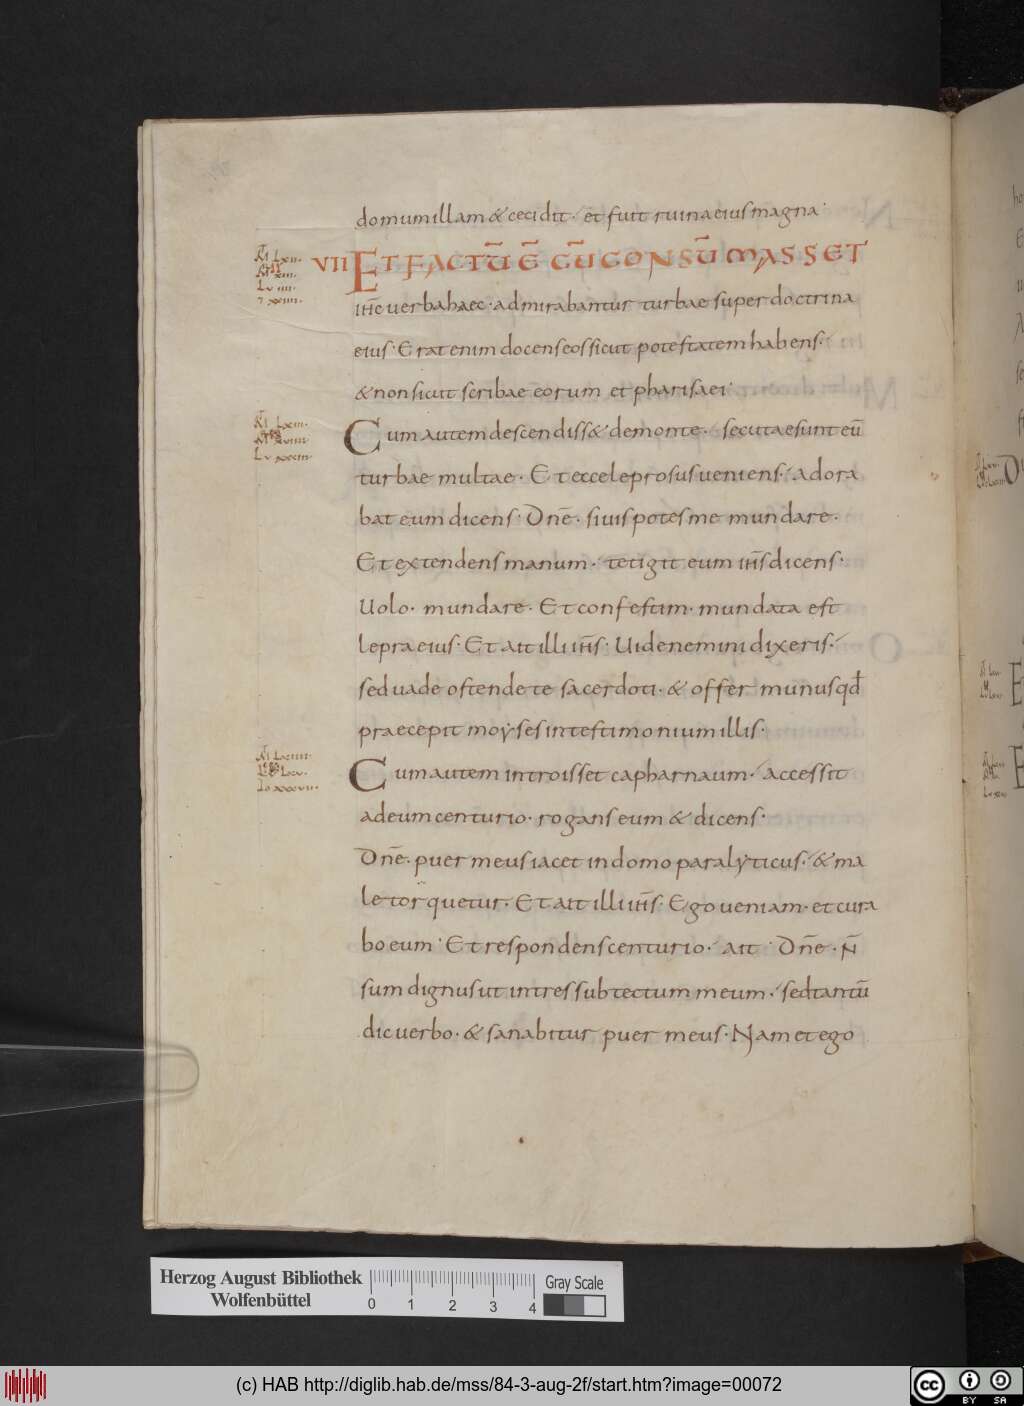 domum illam & cecidit· et fuit ruina eius magna·
VII ET FACTŪ Ē CŪ CONSŪMASSET
ih̄c uerba haec· admirabantur turbae super doctrina
eius· Erat enim docens eos sicut potestatem habens·
& non sicut scribae eorum et pharisaei·
Cum autem descendiss& de monte· secutae sunt eū
turbae multae· Et ecce leprosus ueniens· adora
bat eum dicens· Dn̄e· si uis potes me mundare·
Et extendens manum· tetigit eum ih̄s dicens·
Uolo· mundare· Et confestim· mundata est
lepra eius· Et ait illi ih̄s· Uide nemini dixeris·
sed uade ostende te sacerdoti· & offer munus qd̄
praecepit moyses in testimonium illis·
Cum autem introisset capharnaum· accessit
ad eum centurio· rogans eum & dicens·
Dn̄e· puer meus iacet in domo paralyticus· & ma
le torquetur· Et ait illi ih̄s· Ego ueniam· et cura
bo eum· Et respondens centurio· ait· Dn̄e· N̄
sum dignus ut intres sub tectum meum· sed tantū
dic uerbo· & sanabitur puer meus· Nam et ego
Herzog August Bibliothek
Wolfenbüttel
0 1 2 3 4
Gray Scale
(c) HAB http://diglib.hab.de/mss/84-3-aug-2f/start.htm?image=00072
cc BY SA